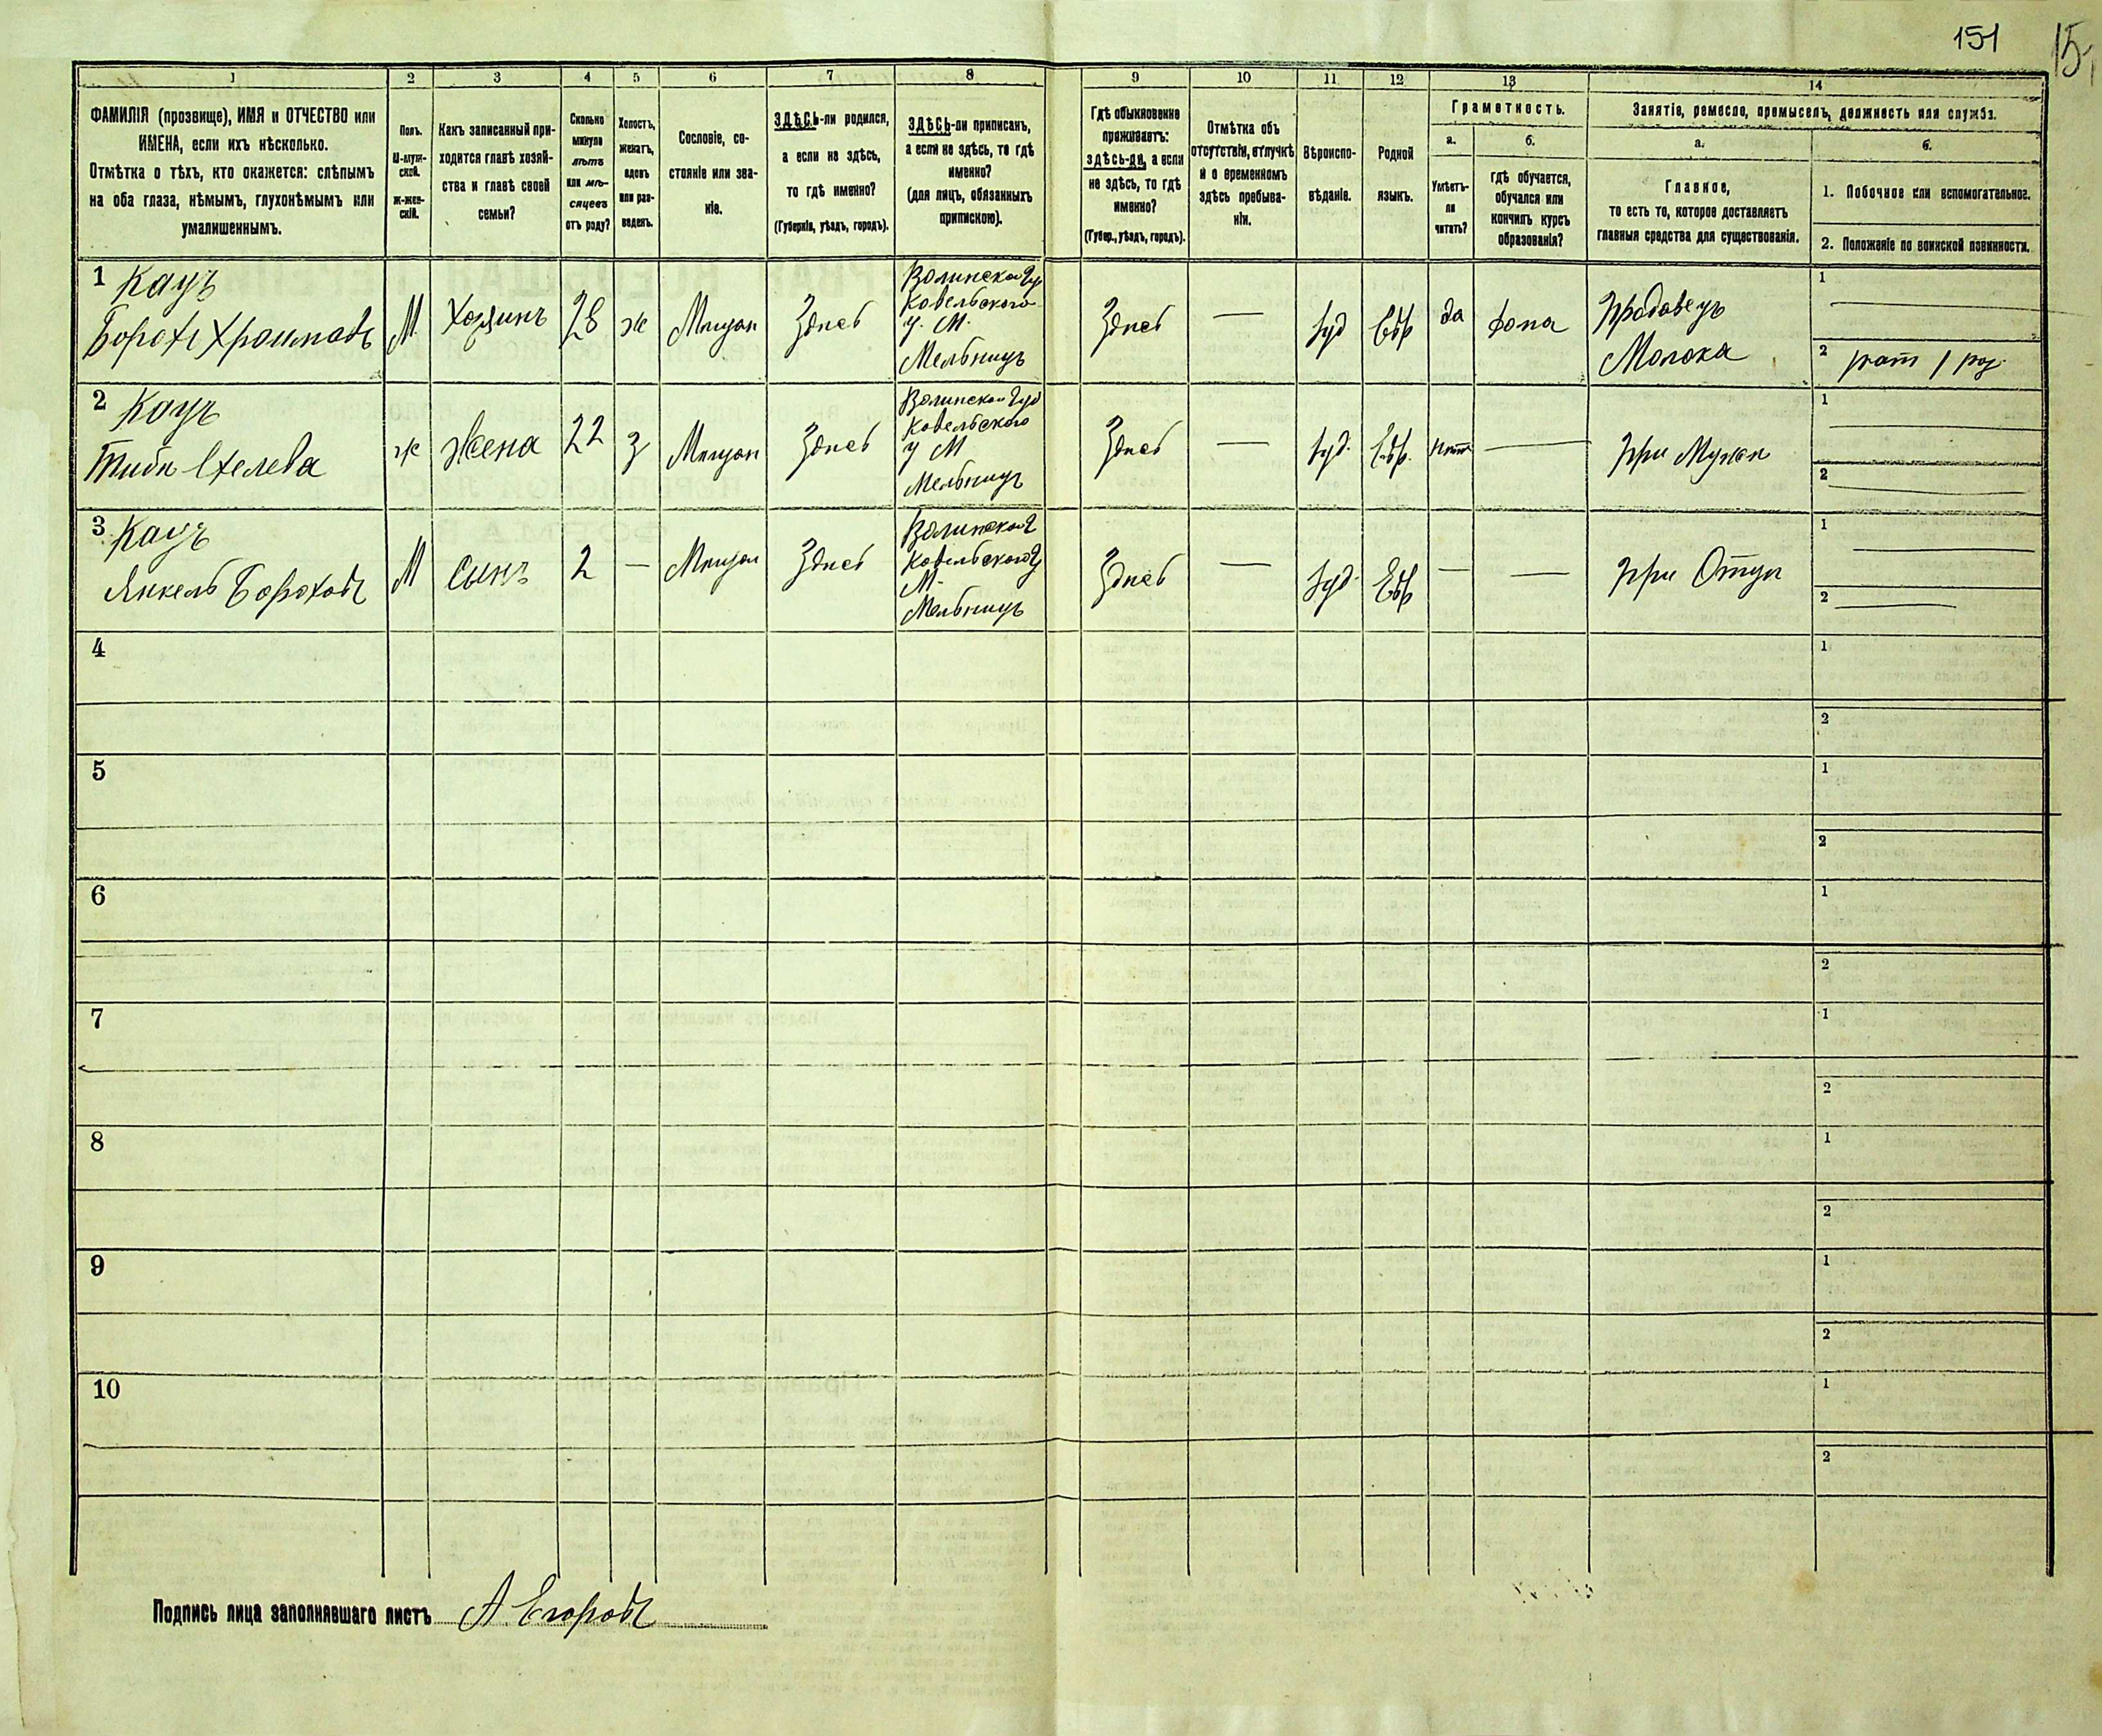 151
15
1
2
3
4
5
6
7
8
9
10
11
12
13
14
ФАМИЛІЯ (прозвище), ИМЯ и ОТЧЕСТВО или
ИМЕНА, если ихъ нѣсколько.
Отмѣтка о тѣхъ, кто окажется: слѣпымъ
на оба глаза, нѣмымъ, глухонѣмымъ или
умалишеннымъ.
Полъ.
М-муж-
ской.
Ж-жен-
скій.
Какъ записанный при-
ходится главѣ хозяй-
ства и главѣ своей
семьи?
Сколько
минуло
лѣтъ
или мѣ-
сяцевъ
отъ роду?
Холостъ,
женатъ,
вдовъ
или раз-
веденъ.
Сословіе, со-
стояніе или зва-
ніе.
ЗДѢСЬ-ли родился,
а если не здѣсь,
то гдѣ именно?
(Губернія, уѣздъ, городъ).
ЗДѢСЬ-ли приписанъ,
а если не здѣсь, то гдѣ
именно?
(для лицъ, обязанныхъ
припискою).
Гдѣ обыкновенно
проживаетъ:
здѣсь-ли, а если
не здѣсь, то гдѣ
именно?
(Губер., уѣздъ, городъ).
Отмѣтка объ
отсутствіи, отлучкѣ
и о временномъ
здѣсь пребыва-
ніи.
Вѣроиспо-
вѣданіе.
Родной
языкъ.
Грамотность.
а.
Умѣетъ-
ли
читать?
б.
гдѣ обучается,
обучался или
кончилъ курсъ
образованія?
Занятіе, ремесло, промыселъ, должность или служба.
а.
Главное,
то есть то, которое доставляетъ
главныя средства для существованія.
б.
1. Побочное или вспомогательное.
2. Положеніе по воинской повинности.
1 Кацъ
Борохъ
М
Хозяинъ
28
ж
Мещан
Здесь
Волинской Гу
Ковельского
у. М.
Мельницъ
Здесь
—
Іуд
Евр
да
Дома
Продавецъ
Молока
1
2
2 Кацъ
ж
Жена
22
з
Мещан
Здесь
Волинской Губ
Ковельского
у М
Мельницъ
Здесь
—
Іуд.
Евр.
нет
—
при Мужи
1
2
3 Кацъ
Янкель Бороховъ
М
Сынъ
2
—
Мещан
Здесь
Волинской Г
Ковельского у
М.
Мельницъ
Здесь
—
Іуд.
Евр
—
—
при Отци
1
2
4
1
2
5
1
2
6
1
2
7
1
2
8
1
2
9
1
2
10
1
2
Подпись лица заполнявшаго листъ А Егоровъ